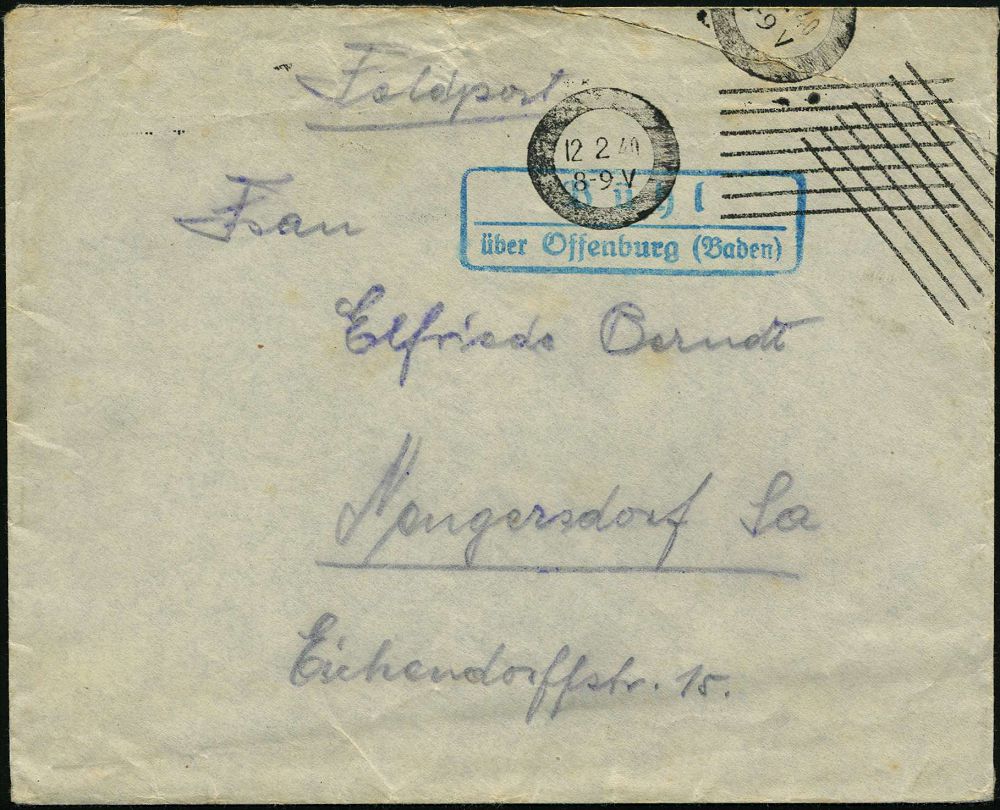 Feldpost
12 2 40
8-9 V
Bühl
über Offenburg (Baden)
Frau
Elfriede Berndt
Neugersdorf Sa
Eichendorffstr. 15.